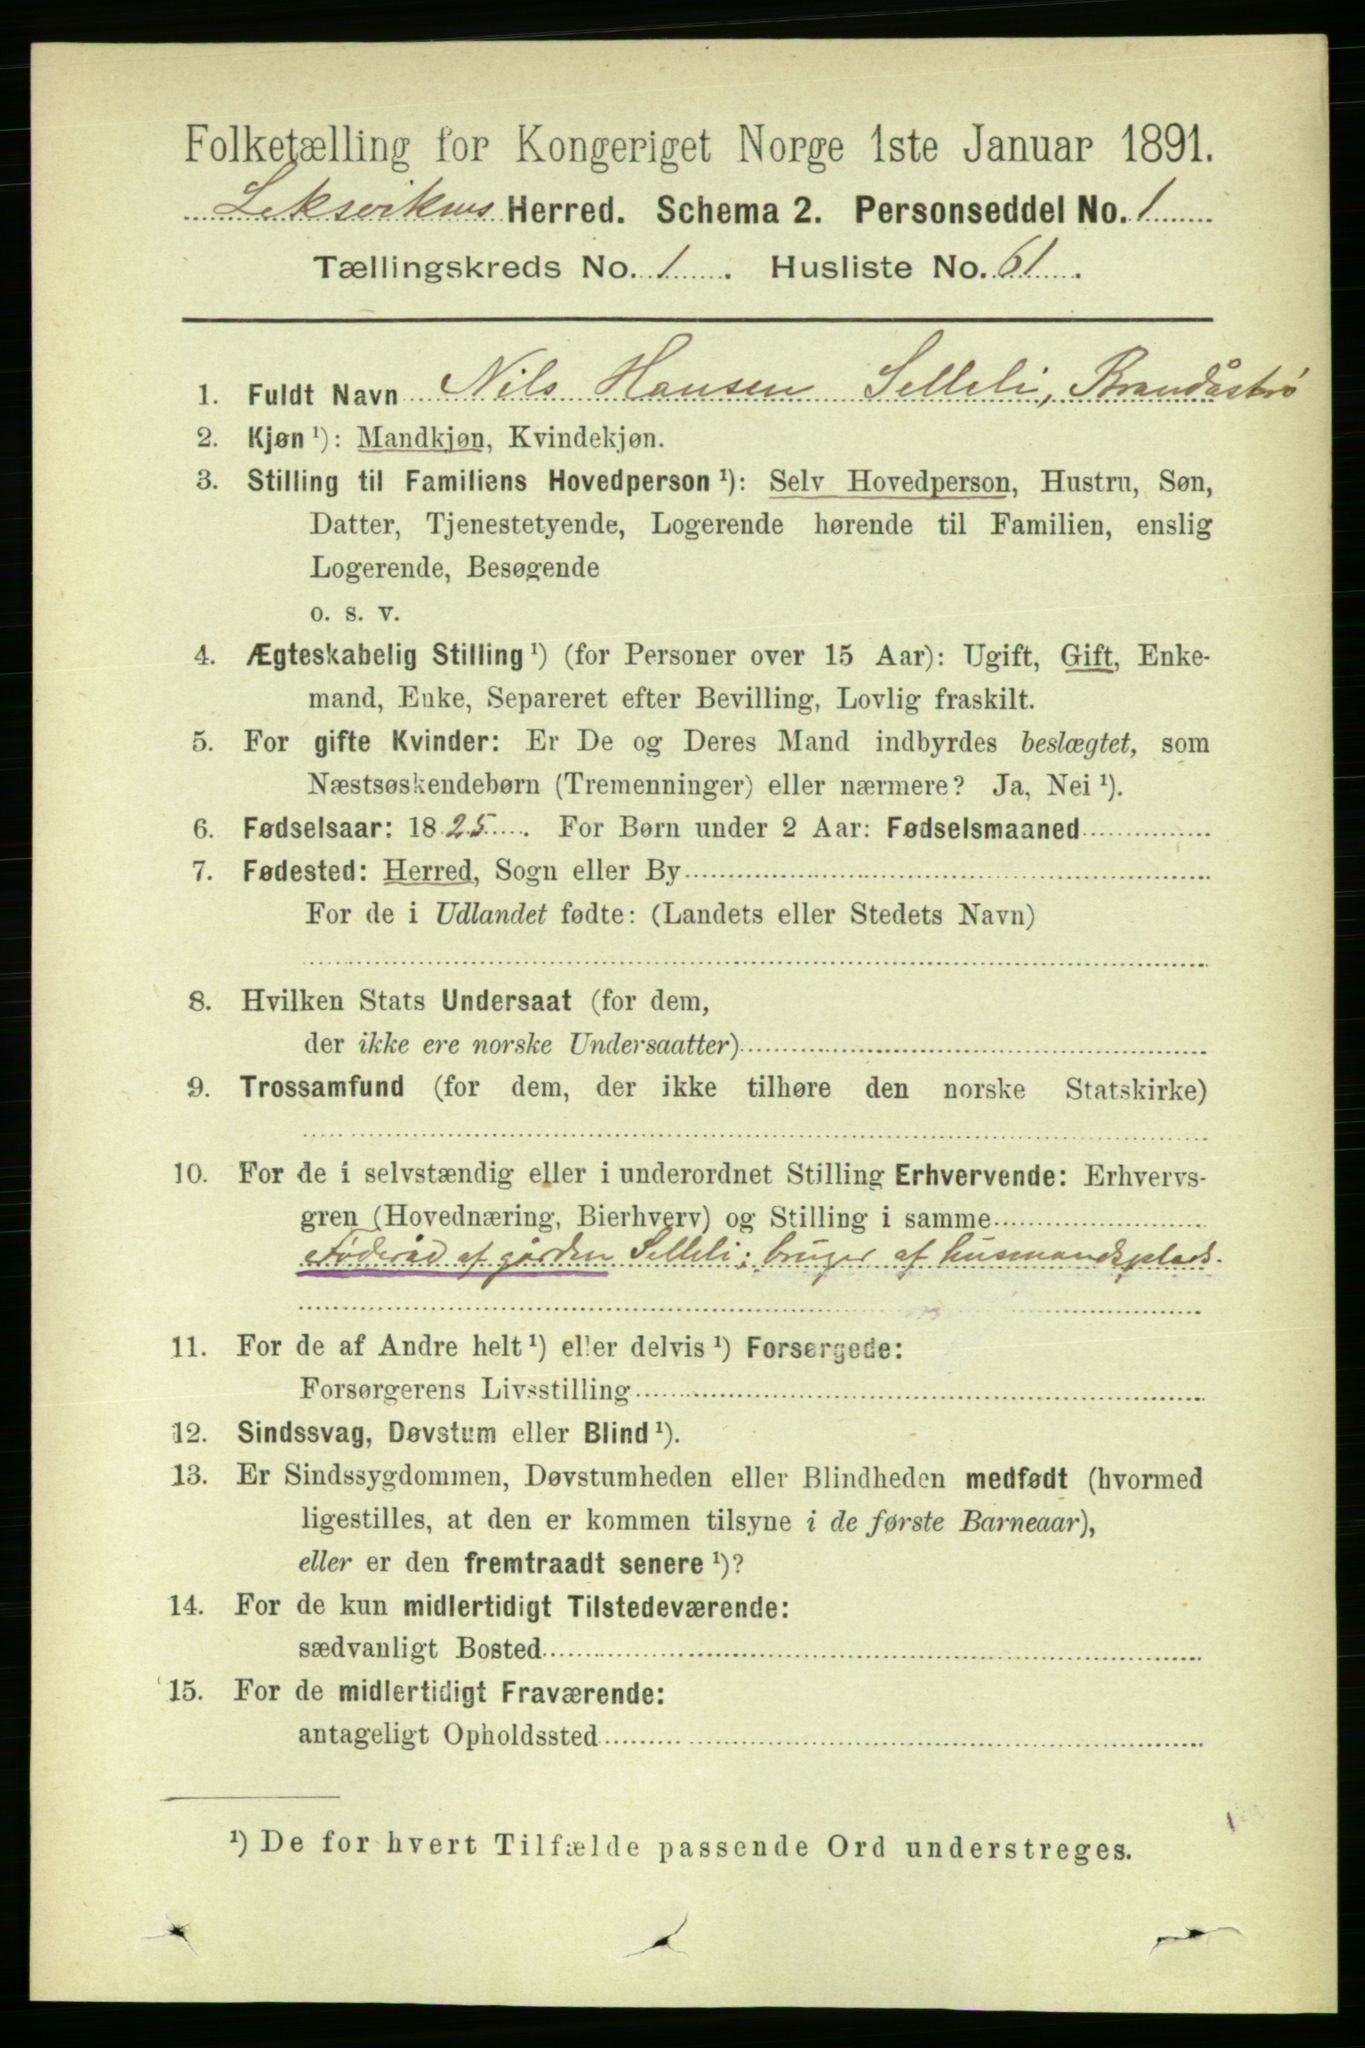 Folketælling for Kongeriget Norge 1ste Januar 1891.
Leksvikens Herred. Schema 2. Personseddel No. 1
Tællingskreds No. 1. Husliste No. 61.
1. Fuldt Navn Nils Hansen Selleli, Brandåstrø
2. Kjøn ¹): Mandkjøn, Kvindekjøn.
3. Stilling til Familiens Hovedperson ¹): Selv Hovedperson, Hustru, Søn,
Datter, Tjenestetyende, Logerende hørende til Familien, enslig
Logerende, Besøgende
o. s. v.
4. Ægteskabelig Stilling ¹) (for Personer over 15 Aar): Ugift, Gift, Enke-
mand, Enke, Separeret efter Bevilling, Lovlig fraskilt.
5. For gifte Kvinder: Er De og Deres Mand indbyrdes beslægtet, som
Næstsøskendebørn (Tremenninger) eller nærmere? Ja, Nei ¹).
6. Fødselsaar: 1825. For Børn under 2 Aar: Fødselsmaaned
7. Fødested: Herred, Sogn eller By
For de i Udlandet fødte: (Landets eller Stedets Navn)
8. Hvilken Stats Undersaat (for dem,
der ikke ere norske Undersaatter)
9. Trossamfund (for dem, der ikke tilhøre den norske Statskirke)
10. For de i selvstændig eller i underordnet Stilling Erhvervende: Erhvervs-
gren (Hovednæring, Bierhverv) og Stilling i samme
Föderåd af gården Selleli; bruger af husmandsplads.
11. For de af Andre helt ¹) eller delvis ¹) Forsørgede:
Forsørgerens Livsstilling
12. Sindssvag, Døvstum eller Blind ¹).
13. Er Sindssygdommen, Døvstumheden eller Blindheden medfødt (hvormed
ligestilles, at den er kommen tilsyne i de første Barneaar),
eller er den fremtraadt senere ¹)?
14. For de kun midlertidigt Tilstedeværende:
sædvanligt Bosted
15. For de midlertidigt Fraværende:
antageligt Opholdssted
¹) De for hvert Tilfælde passende Ord understreges.